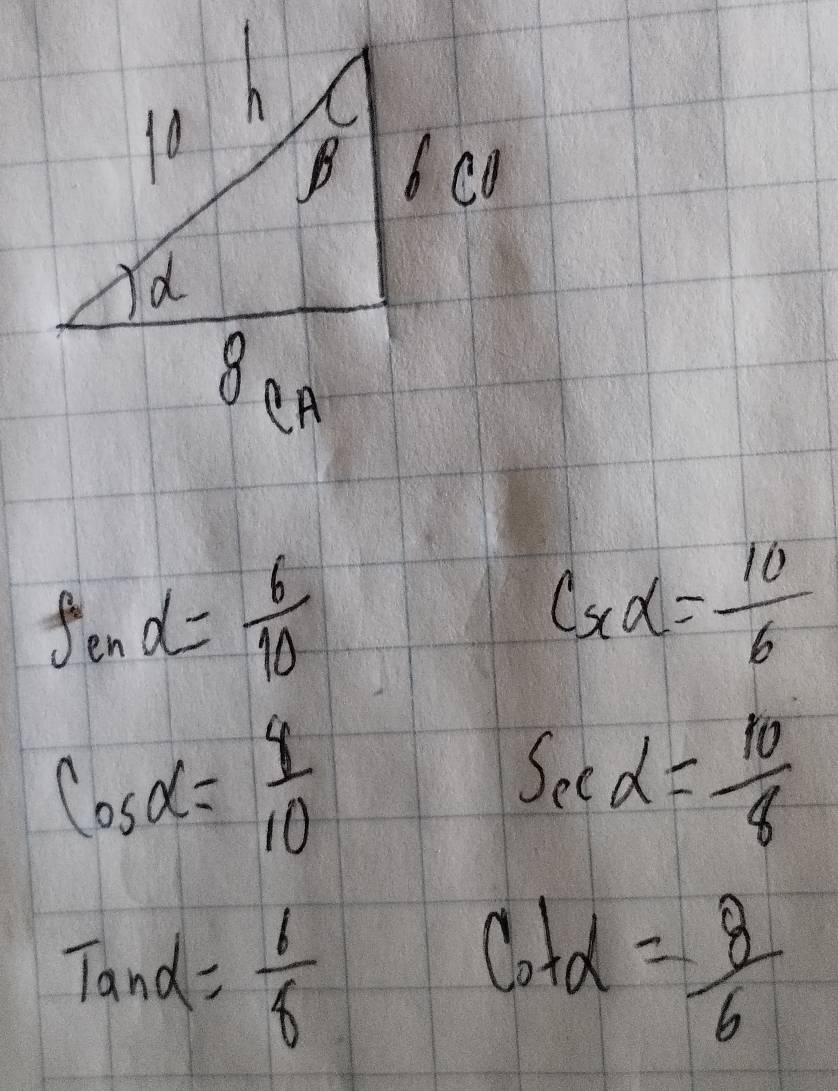 h
10
B
6 CO
α
8 CA
Sen α = 6/10
Csc α = 10/6
Cos α = 8/10
Sec α = 10/8
Tan α = 6/8
Cot α = 8/6